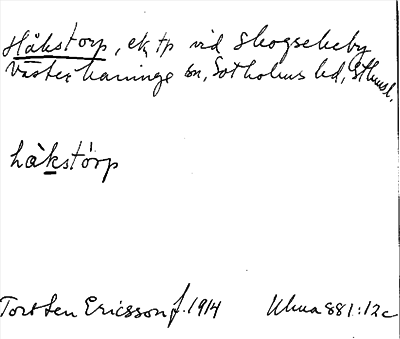 Håkstorp, ek tp vid Skogsekeby
Västerhaninge sn, Sotholms hd, Sthmsl.
hàkstórp
Torsten Ericsson f. 1914 Uhma 881:12c